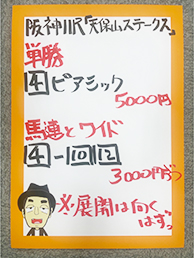 阪神11R「天保山ステークス」
単勝
14 ピアシック
5000円
馬連とワイド
14-10 12
3000円ずつ
※展開は向く
はずっ